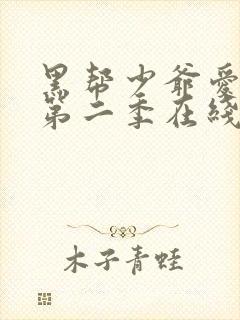 黑帮少爷爱
第二季在线
木子青蛙